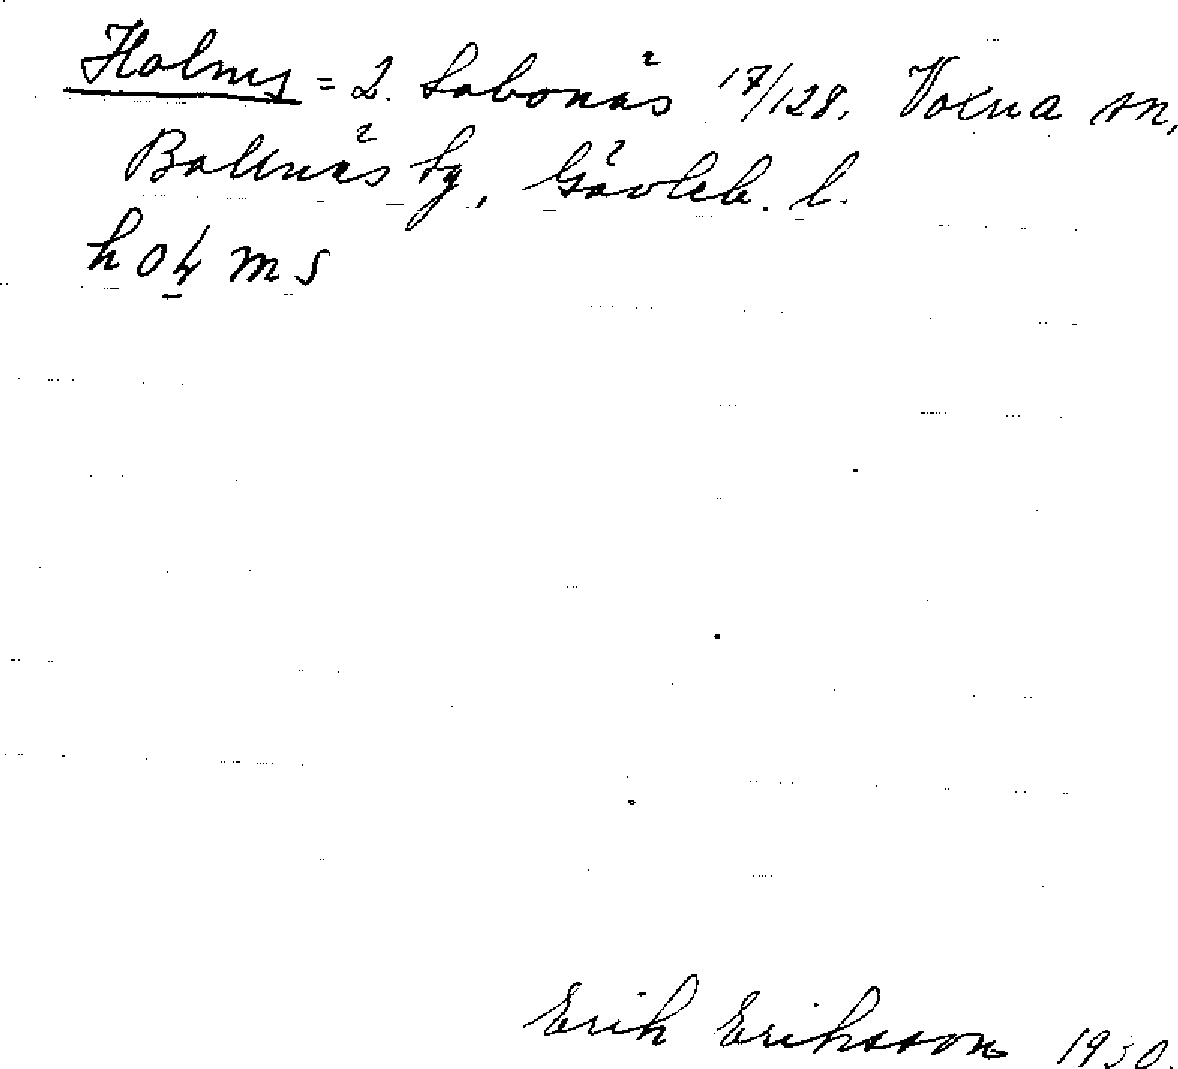 Holms = 2. Lobonäs 17/128. Voxna sn,
Bollnäs tg, Gävleb. l.
Erik Eriksson 1930.